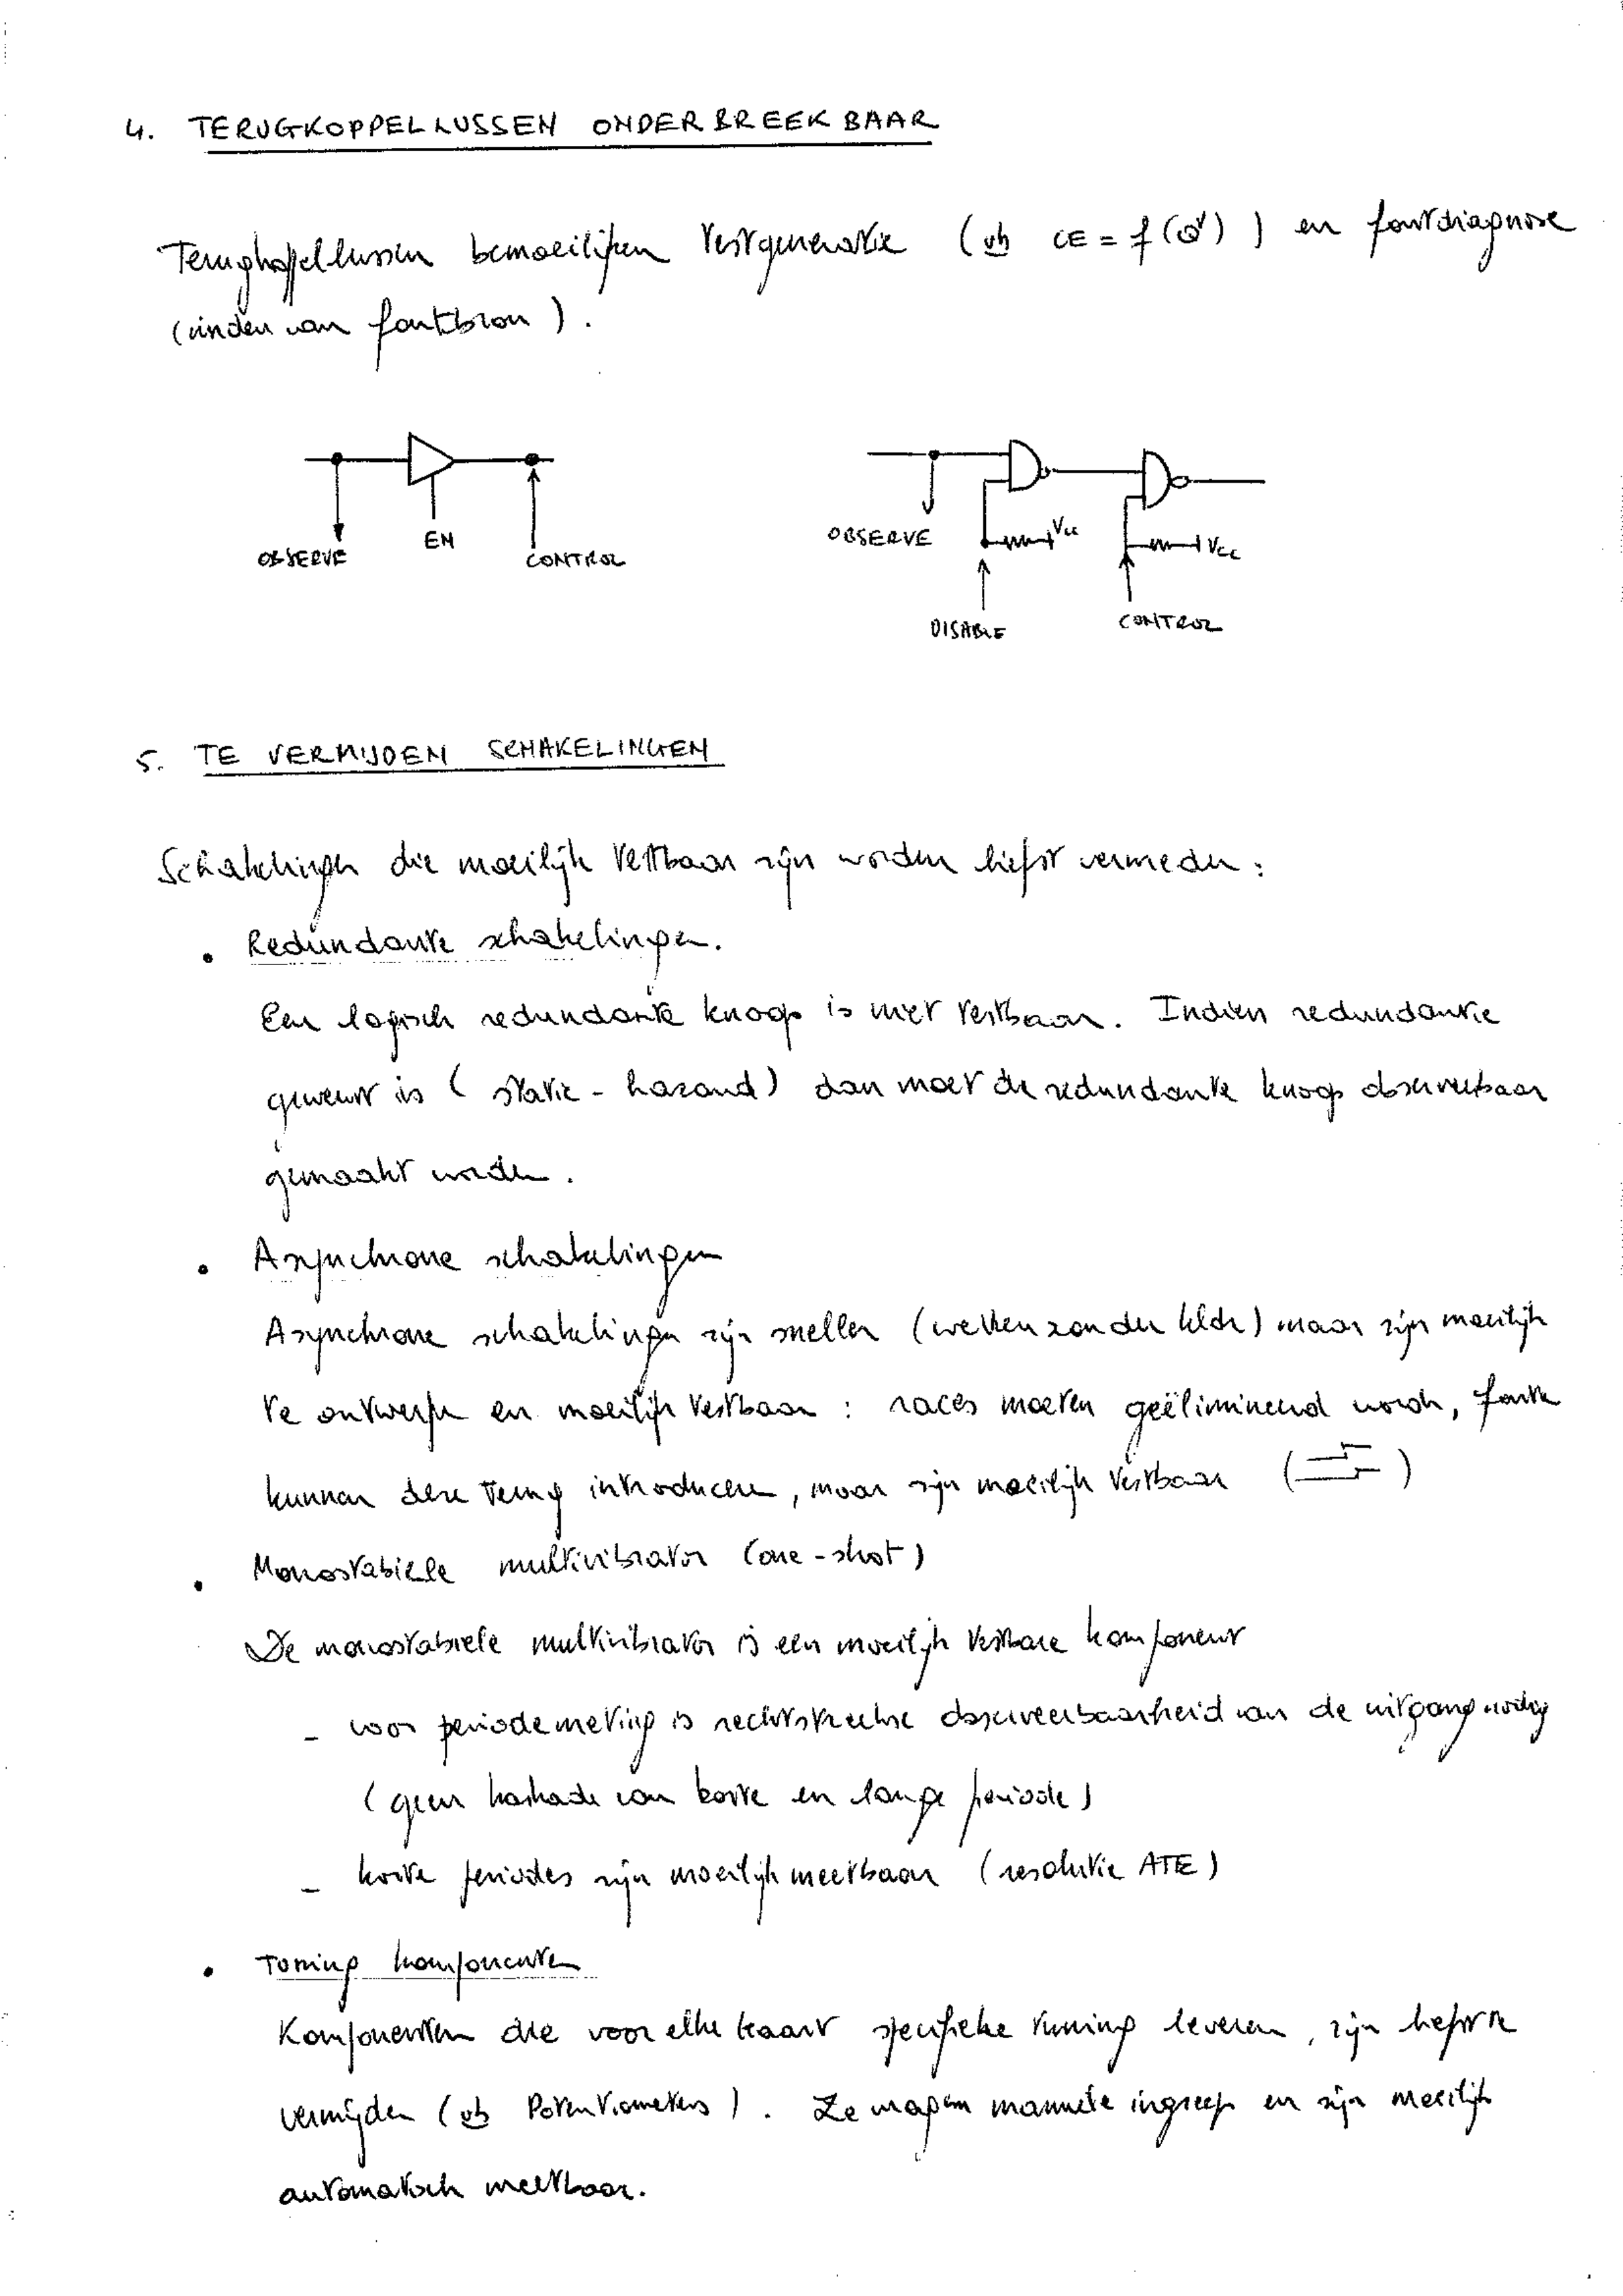 4. TERUGKOPPELLUSSEN ONDERBREEKBAAR
Terugkoppellussen bemoeilijken testgeneratie (vb CE = f(Q)) en foutdiagnose
(vinden van foutbron).
OBSERVE EN CONTROL
OBSERVE Vcc Vcc
DISABLE CONTROL
5. TE VERMIJDEN SCHAKELINGEN
Schakelingen die moeilijk testbaar zijn worden liefst vermeden :
• Redundante schakelingen.
Een logisch redundante knoop is niet testbaar. Indien redundantie
gewenst is (static-hazard) dan moet de redundante knoop observeerbaar
gemaakt worden.
• Asynchrone schakelingen
Asynchrone schakelingen zijn sneller (werken zonder klok) maar zijn moeilijk
te ontwerpen en moeilijk testbaar : races moeten geëlimineerd worden, fouten
kunnen deze terug introduceren, maar zijn moeilijk testbaar ( )
• Monostabiele multivibrator (one-shot)
De monostabiele multivibrator is een moeilijk testbare komponent
- voor periodemeting is rechtstreekse observeerbaarheid van de uitgang nodig
(geen kaskade van korte en lange periode)
- korte periodes zijn moeilijk meetbaar (resolutie ATE)
• Tuning komponenten
Komponenten die voor elke kaart specifieke tuning leveren, zijn liefst te
vermijden (vb Potentiometers). Ze vragen manuele ingreep en zijn moeilijk
automatisch meetbaar.